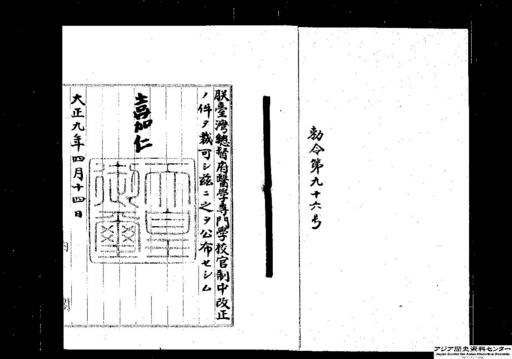 勅令第九十六号
朕臺灣總督府醫學専門學校官制中改正
ノ件ヲ裁可シ茲ニ之ヲ公布セシム
嘉仁
天皇御璽
大正九年四月十四日
アジア歴史資料センター
Japan Center for Asian Historical Records